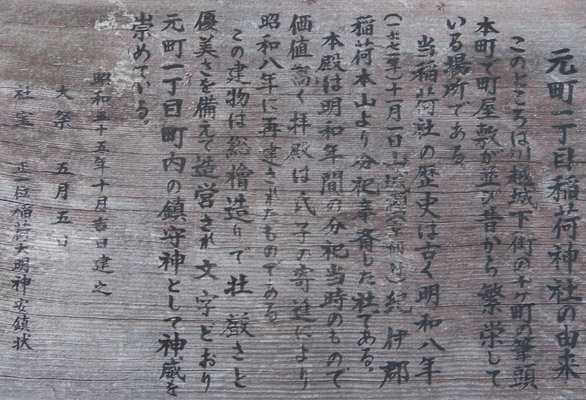 元町一丁目稲荷神社の由来
このところは川越城下街の十ヶ町の筆頭
本町で町屋敷が並び昔から繁栄して
いる場所である。
当稲荷社の歴史は古く明和八年
(一七七一年)十一月一日山城国 紀伊郡
稲荷本山より分祀奉斎した社である。
本殿は明和年間の分祀当時のもので
価値高く拝殿は氏子の寄進により
昭和八年に再建されたものである。
この建物は総檜造りで荘厳さと
優美さを備えて造営され文字どおり
元町一丁目町内の鎮守神として神威を
崇めている。
昭和五十五年十月吉日建之
大祭 五月五日
社宝 正一位稲荷大明神安鎮状